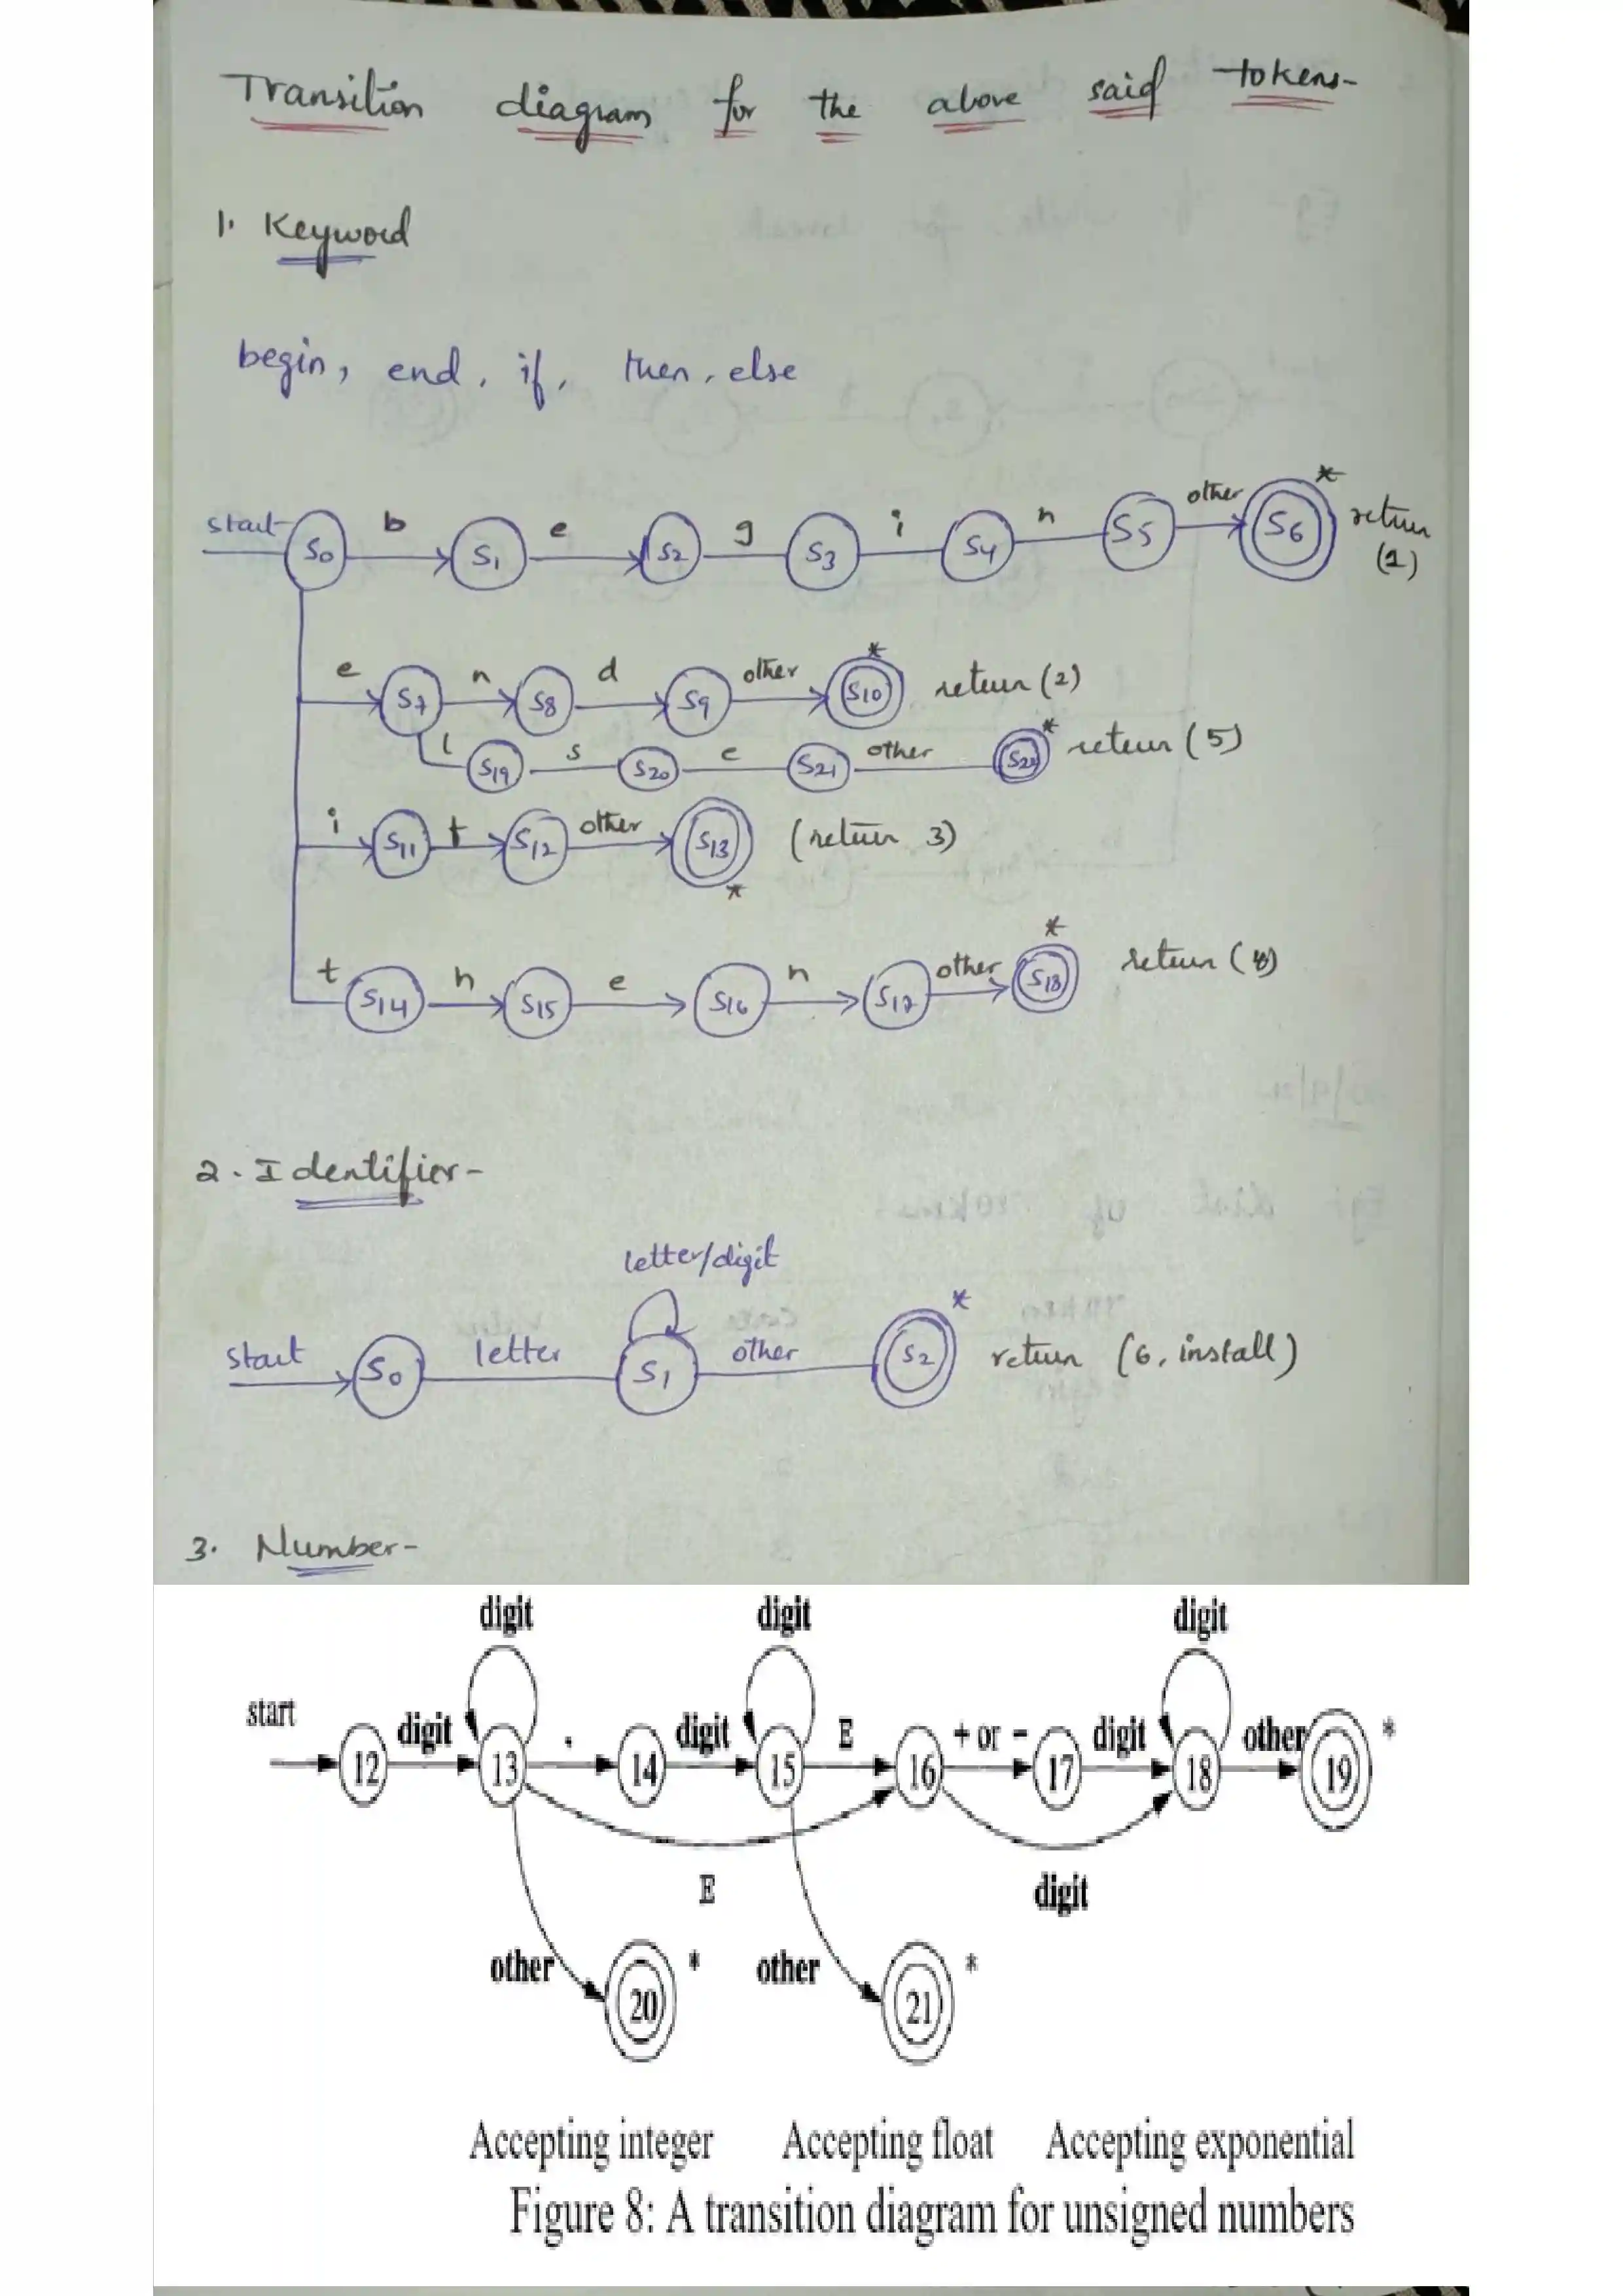 Transition diagram for the above said tokens-
1. Keyword
begin, end, if, then, else
start S0 b S1 e S2 g S3 i S4 n S5 other S6 * return (1)
e S7 n S8 d S9 other S10 * return (2)
l S19 s S20 e S21 other S22 * return (5)
i S11 f S12 other S13 * (return 3)
t S14 h S15 e S16 n S17 other S18 * return (4)
2. Identifier-
letter/digit
start S0 letter S1 other S2 * return (6, install)
3. Number-
digit digit digit
start 12 digit 13 . 14 digit 15 E 16 + or - 17 digit 18 other 19 *
E digit
other 20 * other 21 *
Accepting integer Accepting float Accepting exponential
Figure 8: A transition diagram for unsigned numbers